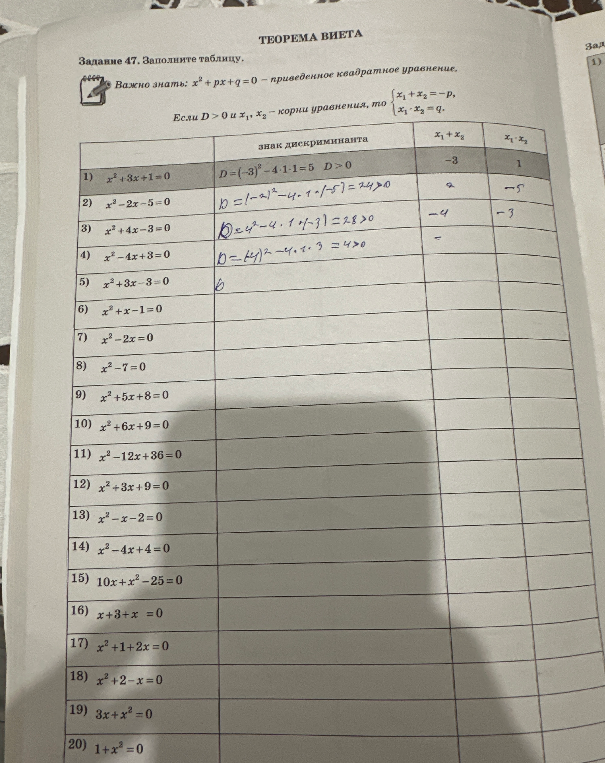 ТЕОРЕМА ВИЕТА
Задание 47. Заполните таблицу.
Важно знать: x² + px + q = 0 – приведенное квадратное уравнение,
Если D > 0 и x₁, x₂ – корни уравнения, то { x₁ + x₂ = –p,
x₁ · x₂ = q.
знак дискриминанта x₁ + x₂ x₁ · x₂
1) x² + 3x + 1 = 0 D = (–3)² – 4·1·1 = 5 D > 0 –3 1
2) x² – 2x – 5 = 0 D = (–2)² – 4·1·(–5) = 24 > 0 2 –5
3) x² + 4x – 3 = 0 D = 4² – 4·1·(–3) = 28 > 0 –4 –3
4) x² – 4x + 3 = 0 D = (–4)² – 4·1·3 = 4 > 0 –
5) x² + 3x – 3 = 0
6) x² + x – 1 = 0
7) x² – 2x = 0
8) x² – 7 = 0
9) x² + 5x + 8 = 0
10) x² + 6x + 9 = 0
11) x² – 12x + 36 = 0
12) x² + 3x + 9 = 0
13) x² – x – 2 = 0
14) x² – 4x + 4 = 0
15) 10x + x² – 25 = 0
16) x + 3 + x = 0
17) x² + 1 + 2x = 0
18) x² + 2 – x = 0
19) 3x + x² = 0
20) 1 + x² = 0
1)